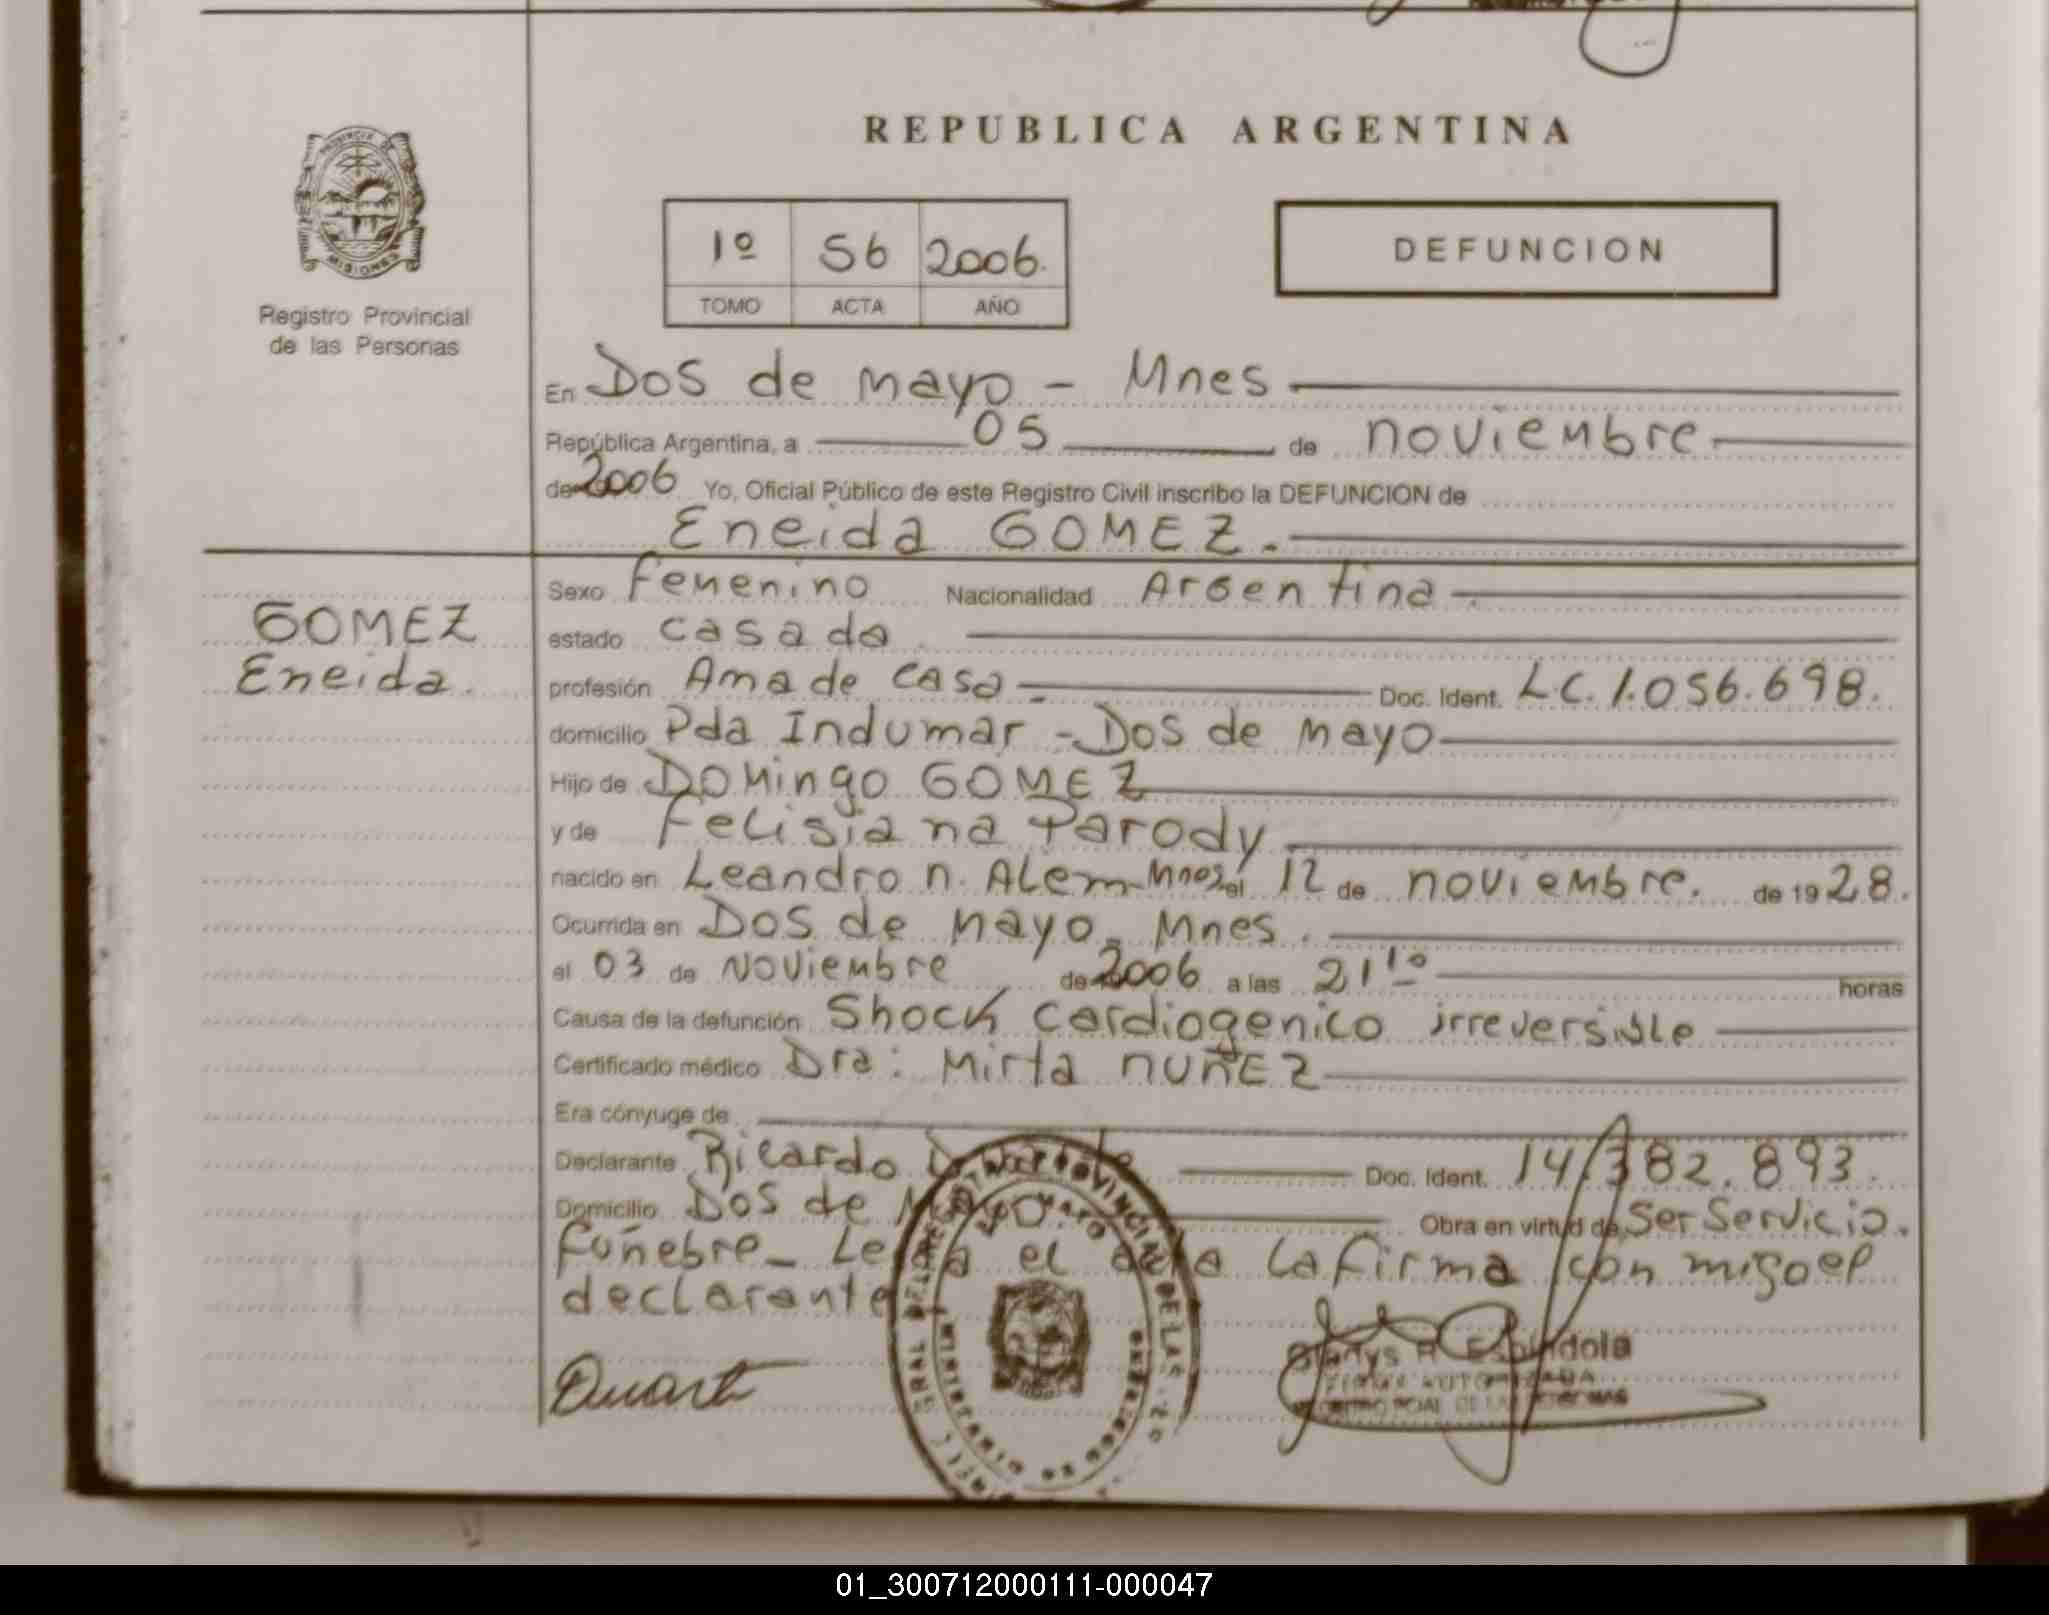 REPUBLICA ARGENTINA
PROVINCIA DE
MISIONES
Registro Provincial
de las Personas
1º 56 2006.
TOMO ACTA AÑO
DEFUNCION
En Dos de mayo - Mnes
República Argentina, a 05 de noviembre
de 2006 Yo, Oficial Público de este Registro Civil inscribo la DEFUNCION de
Eneida GOMEZ.
GOMEZ
Eneida.
Sexo Femenino Nacionalidad Argentina.
estado casada.
profesión Ama de casa Doc. Ident. L.C. 1.056.698.
domicilio Pda Indumar - Dos de mayo
Hijo de Domingo GOMEZ
y de Felisiana Parody
nacido en Leandro n. Alem-Mnes, el 12 de noviembre. de 1928.
Ocurrida en Dos de mayo - Mnes.
el 03 de Noviembre de 2006 a las 21¹⁰ horas
Causa de la defunción Shock cardiogenico irreversible
Certificado médico Dra: Mirta NUÑEZ
Era cónyuge de
Declarante Ricardo Doc. Ident. 14.382.893.
Domicilio Dos de Mayo. Obra en virtud de Ser Servicio.
Fuñebre - el acta la firma con migoel
declarante
Duarte
Gladys A. Espindola
FIRMA AUTORIZADA
REGISTRO PCIAL DE LAS PERSONAS
01_300712000111-000047